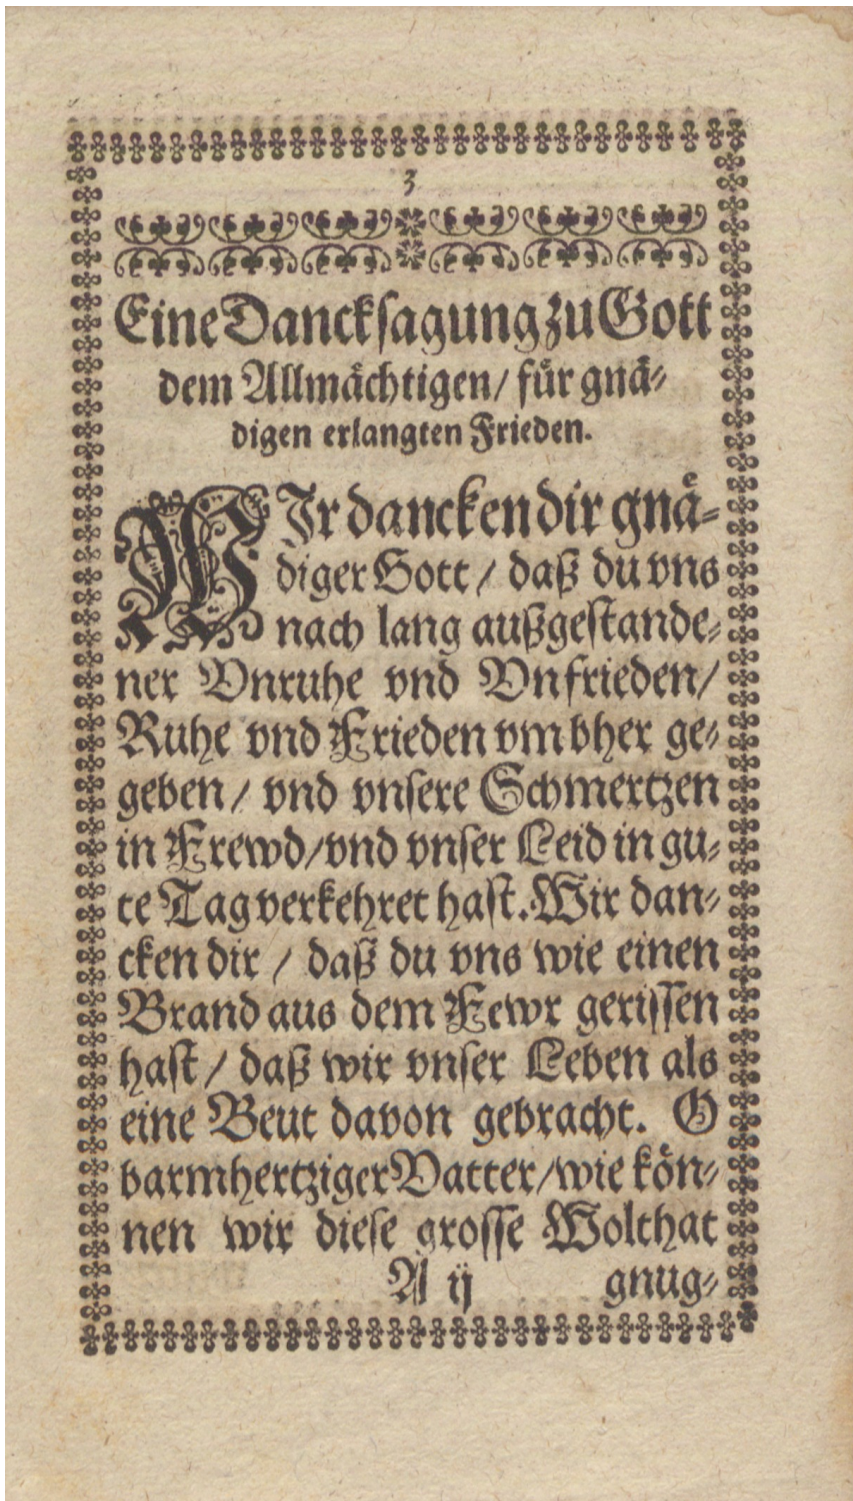 3
Eine Dancksagung zu Gott
dem Allmächtigen/ für gnä-
digen erlangten Frieden.
WIr dancken dir gnä-
diger Gott / daß du vns
nach lang außgestande-
ner Vnruhe vnd Vnfrieden/
Ruhe vnd Frieden vmbher ge-
geben / vnd vnsere Schmertzen
in Frewd/vnd vnser Leid in gu-
te Tag verkehret hast. Wir dan-
cken dir / daß du vns wie einen
Brand aus dem Fewr gerissen
hast / daß wir vnser Leben als
eine Beut davon gebracht. O
barmhertziger Vatter/wie kön-
nen wir diese grosse Wolthat
A ij gnug-